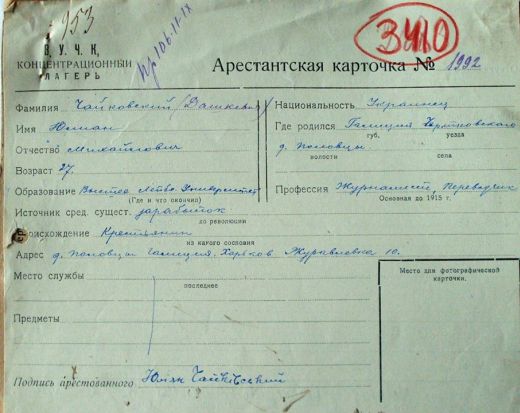 953
В. У. Ч. К.
КОНЦЕНТРАЦИОННЫЙ
ЛАГЕРЬ
3410
Арестантская карточка № 1992
Фамилия Чайковский (Дашкевич)
Имя Юлиан
Отчество Михайлович
Возраст 27.
Образование Высшее Университет
(Где и что окончил)
Источник сред. сущест. заработок
до революции
Происхождение Крестьянин
из какого сословия
Адрес д. Половцы Галиция. Харьков Журавлевка 10.
Место службы
последнее
Предметы
Подпись арестованного Юліян Чайківський
Национальность Украинец
Где родился Галиция Чертковского
губ. уезда
д. Половцы
волости села
Профессия Журналист, Переводчик
Основная до 1915 г.
Место для фотографической
карточки.